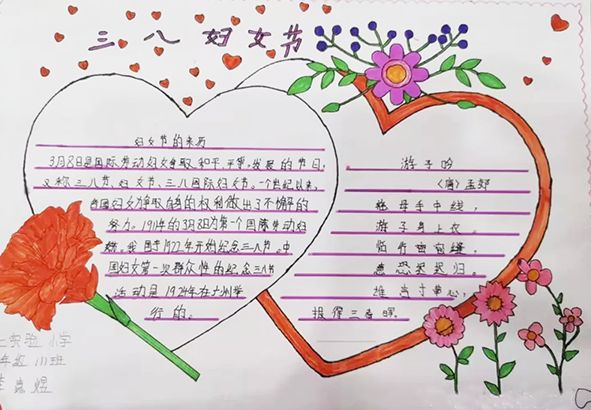 三八妇女节
妇女节的来历
3月8日是国际劳动妇女争取和平、平等、发展的节日,
又称三八节、妇女节、三八国际妇女节。一个世纪以来,
各国妇女争取自身的权利做出了不懈的
努力。1911年的3月8日为第一个国际劳动妇
女节。我国于1922年开始纪念三八节。中
国妇女第一次群众性的纪念三八节
活动是1924年在广州举
行的。
游子吟
〈唐〉孟郊
慈母手中线,
游子身上衣。
临行密密缝,
意恐迟迟归。
谁言寸草心,
报得三春晖
实验小学
年级 班
煜